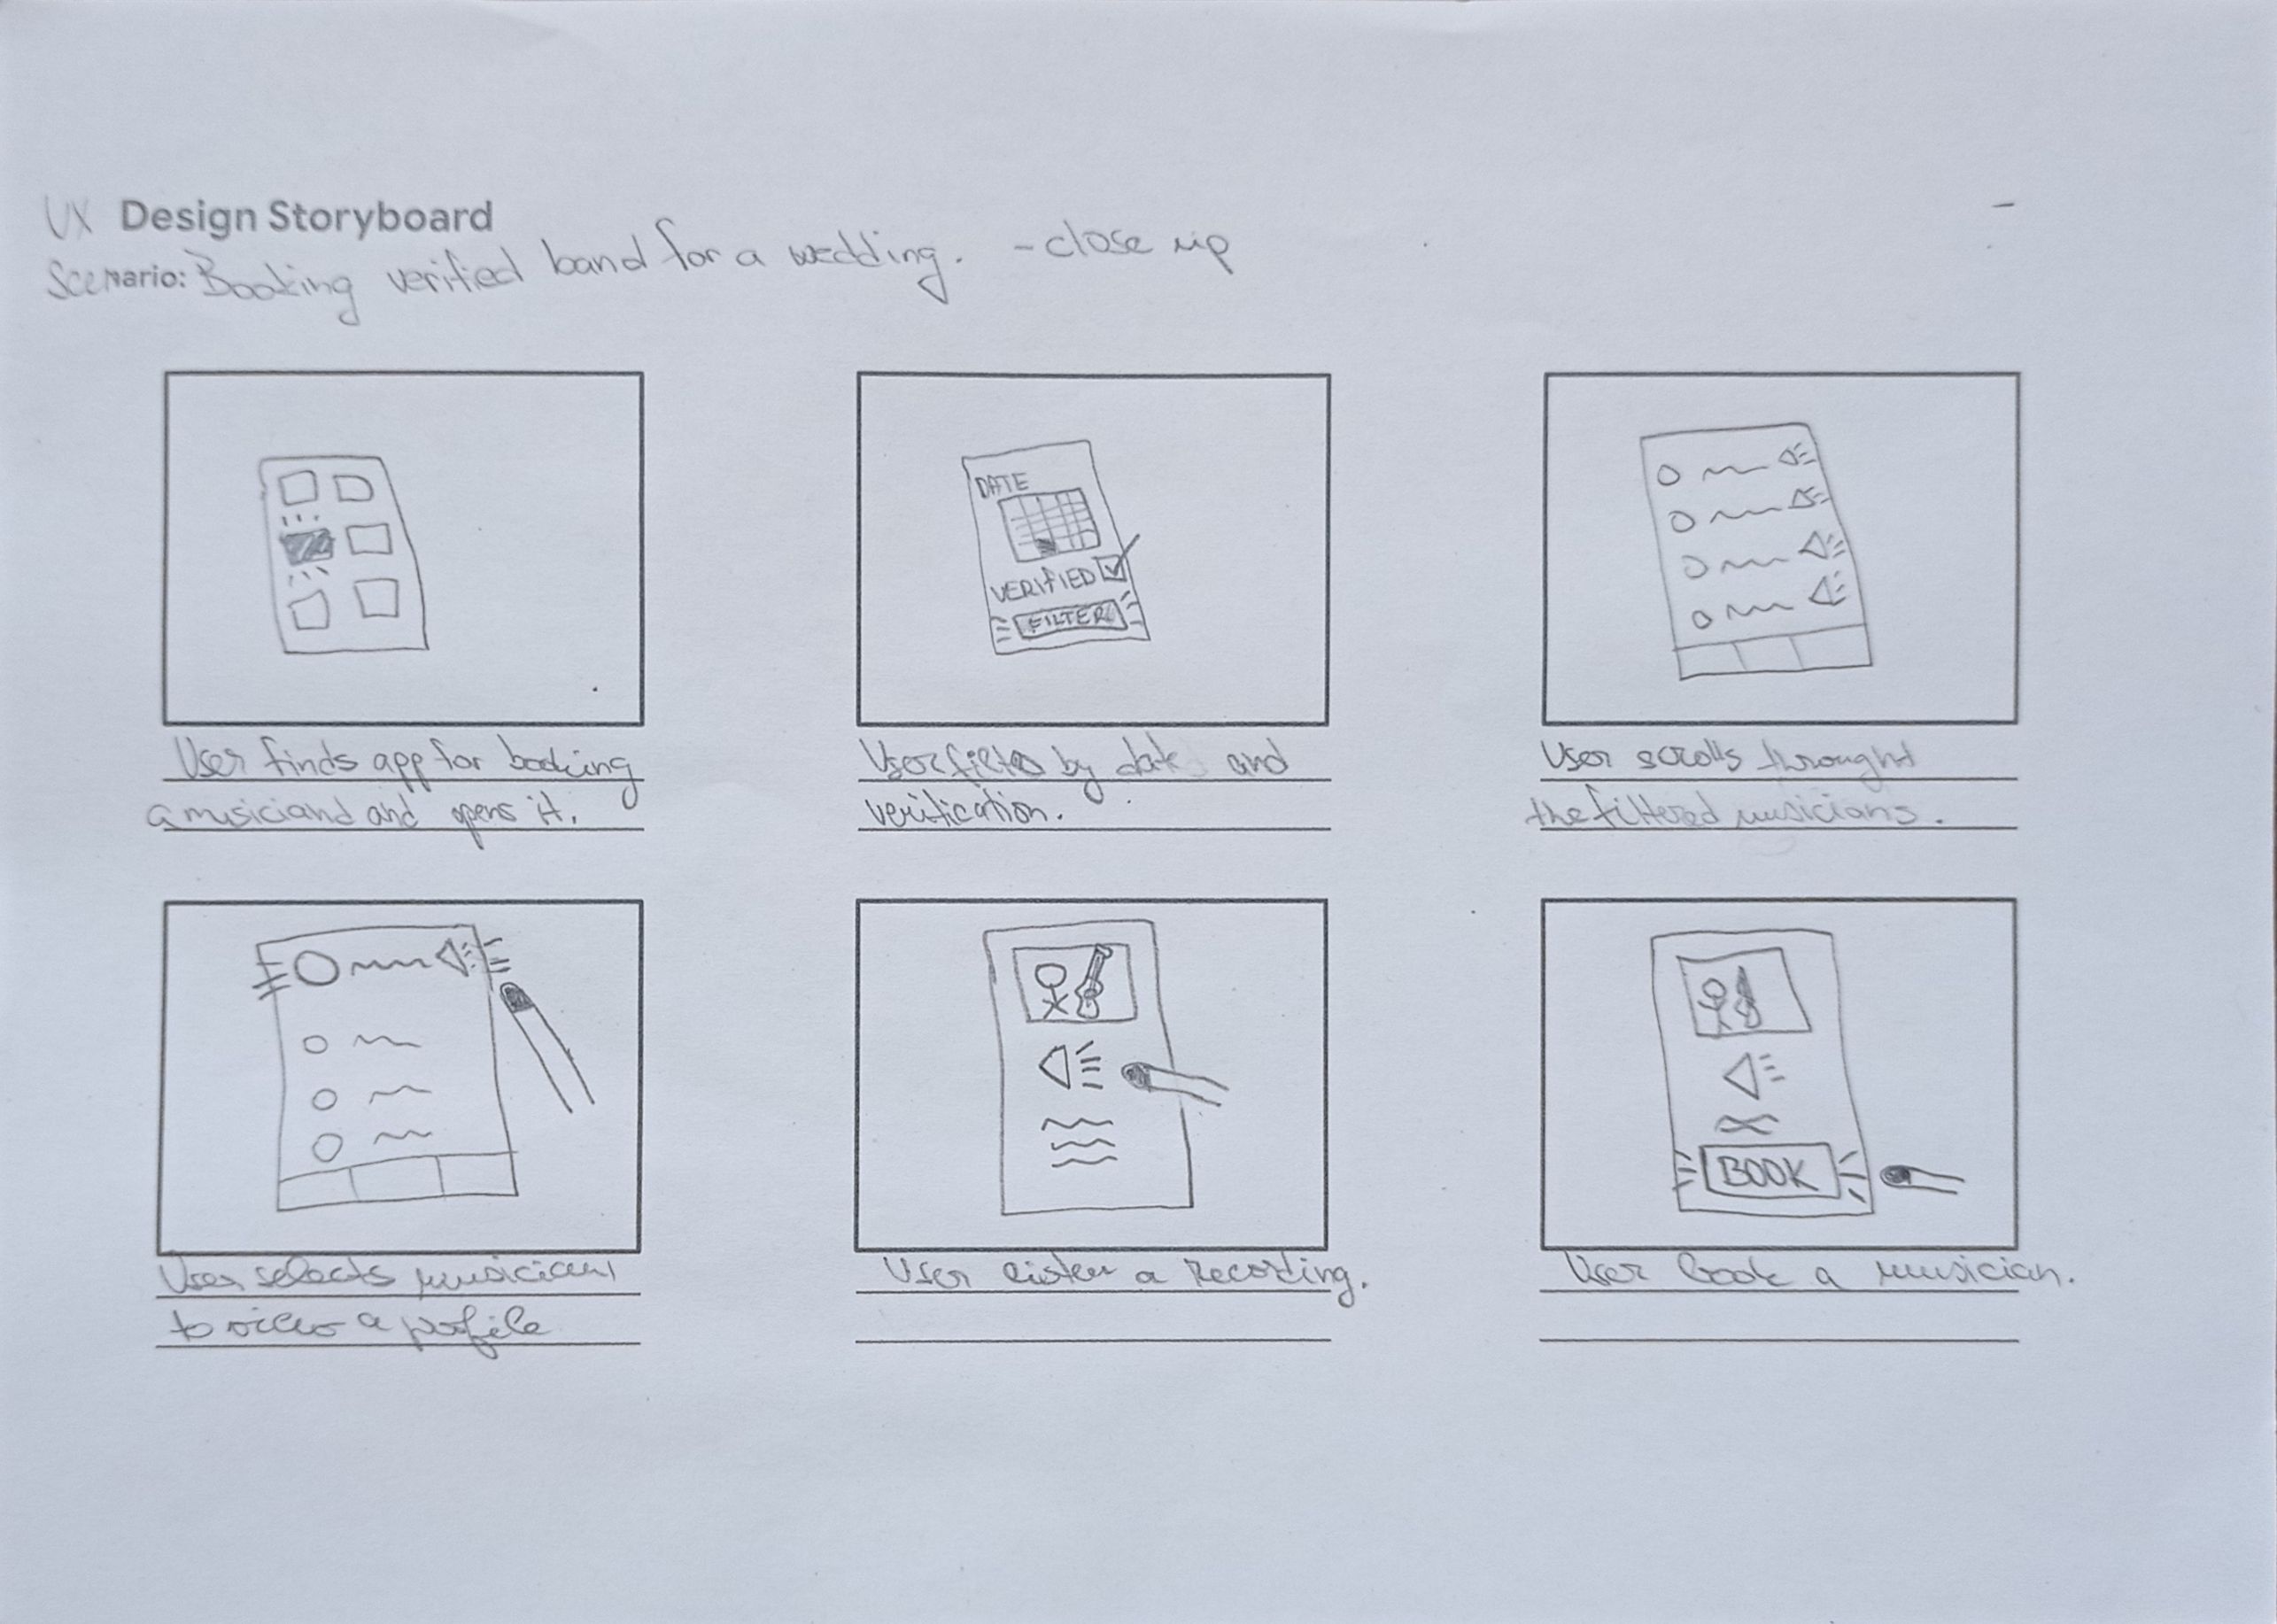 UX Design Storyboard
Scenario: Booking verified band for a wedding. - close up
DATE
VERIFIED
FILTER
User finds app for booking
a musiciand and opens it.
User filters by date and
verification.
User scrolls throught
the filtered musicians.
User selects musician
to view a profile
User listen a recording.
BOOK
User book a musician.